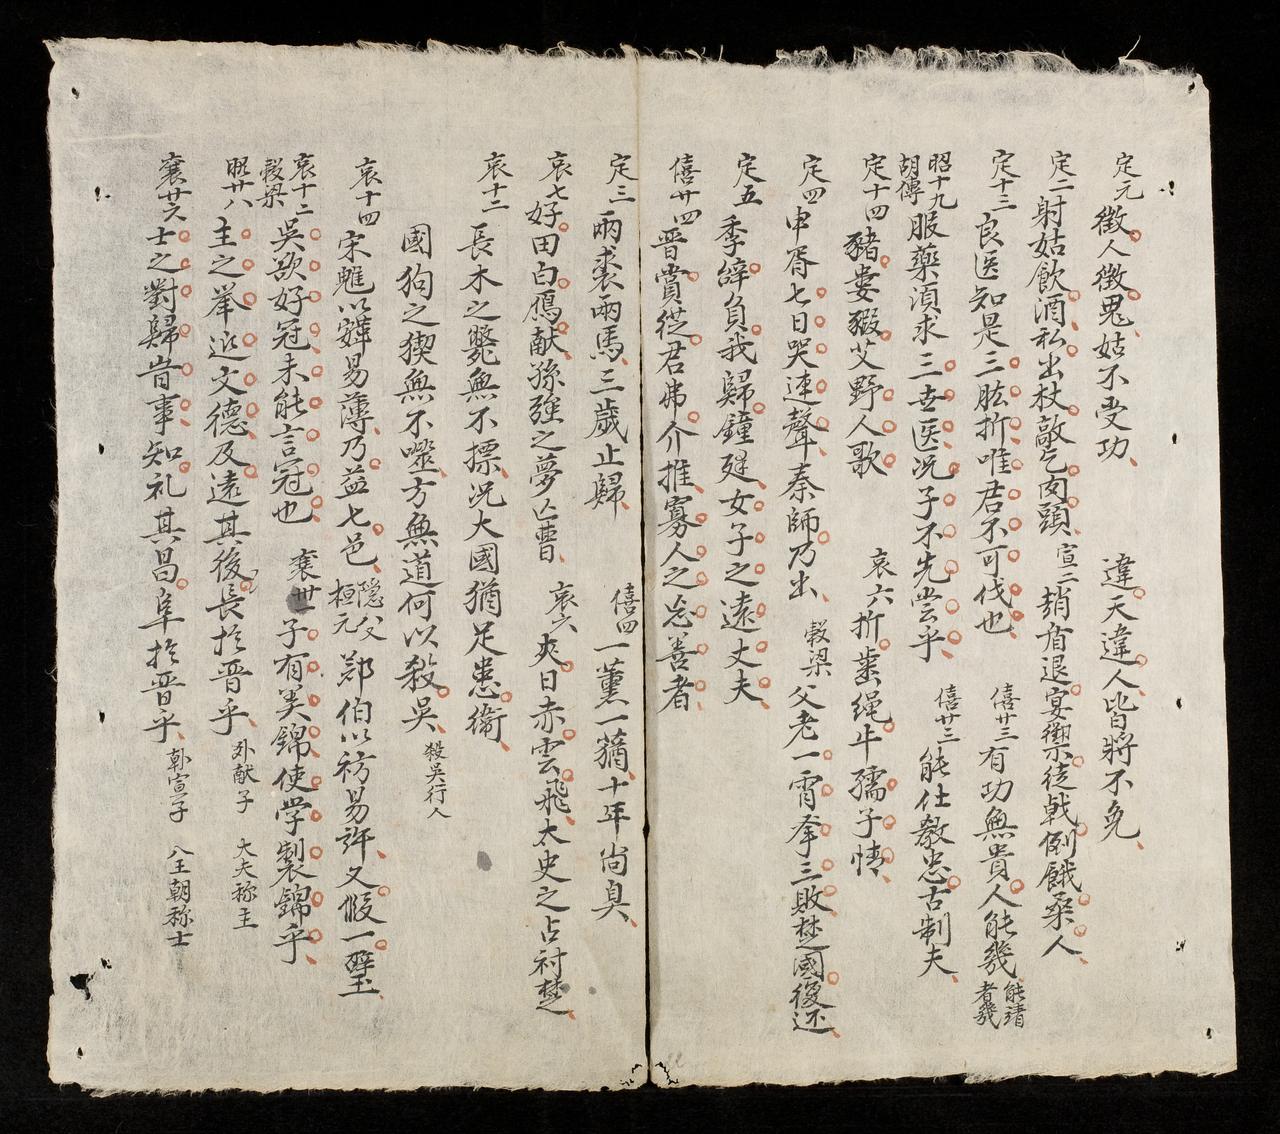 定元 徵人徵鬼姑不受功 違天違人皆將不免
定二 射姑飲酒私出杖敲乞肉頭 宣二 趙盾退宴御徒戟倒餓桑人
定十三 良医知是三肱折唯君不可伐也 僖廿三 有功無貴人能幾 能靖者幾
昭十九 胡傳 服藥須求三世医况子不先尝乎 僖廿三 能仕教忠古制夫
定十四 豬婁豭艾野人歌 哀六 折齒绳牛孺子情
定四 申胥七日哭連聲秦師乃出 穀梁 父老一宵拳三敗楚國復还
定五 季辭負我歸鐘建女子之遠丈夫
僖廿四 晋賞從君弗介推寡人之忘善者
定三 兩裘兩馬三歲止歸 僖四 一薰一蕕十年尚臭
哀七 好田白鴈献孫彊之夢亡曹 哀六 夾日赤雲飛太史之占衬楚
哀十二 長木之斃無不摽况大國猶足患衞
國狗之猰無不噬方無道何以殺吳 殺吳行人
哀十四 宋魋以鞌易薄乃益七邑 隐八 桓元 郑伯以祊易許又假一璧
哀十二 穀梁 吳欲好冠未能言冠也 襄卅一 子有美錦使学製錦乎
昭廿八 主之举近文德及遠其後長於晋乎 外献子 大夫称主
襄廿六 士之對歸旹事知礼其昌阜於晋乎 韓宣子 入王朝称士